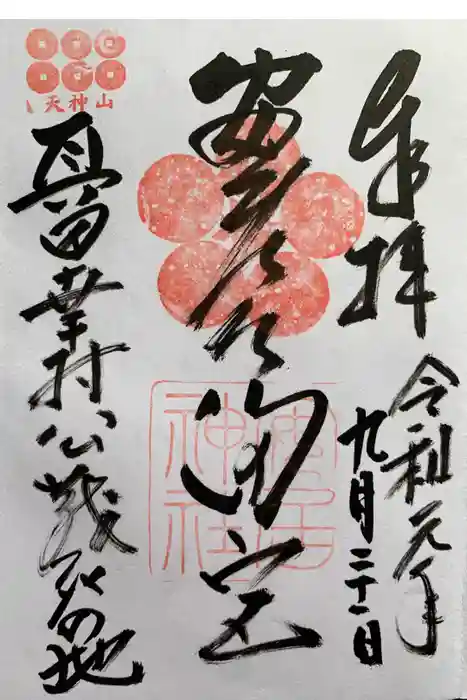 奉拝
令和元年
九月二十一日
安居天満宮
安居
神社
天神山
真田幸村公戦死の地